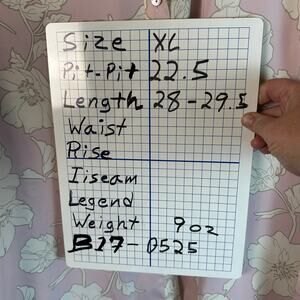 Size XL
Pit-Pit 22.5
Length 28-29.5
Waist
Rise
Iiseam
Legend
Weight 9oz
B17-0525